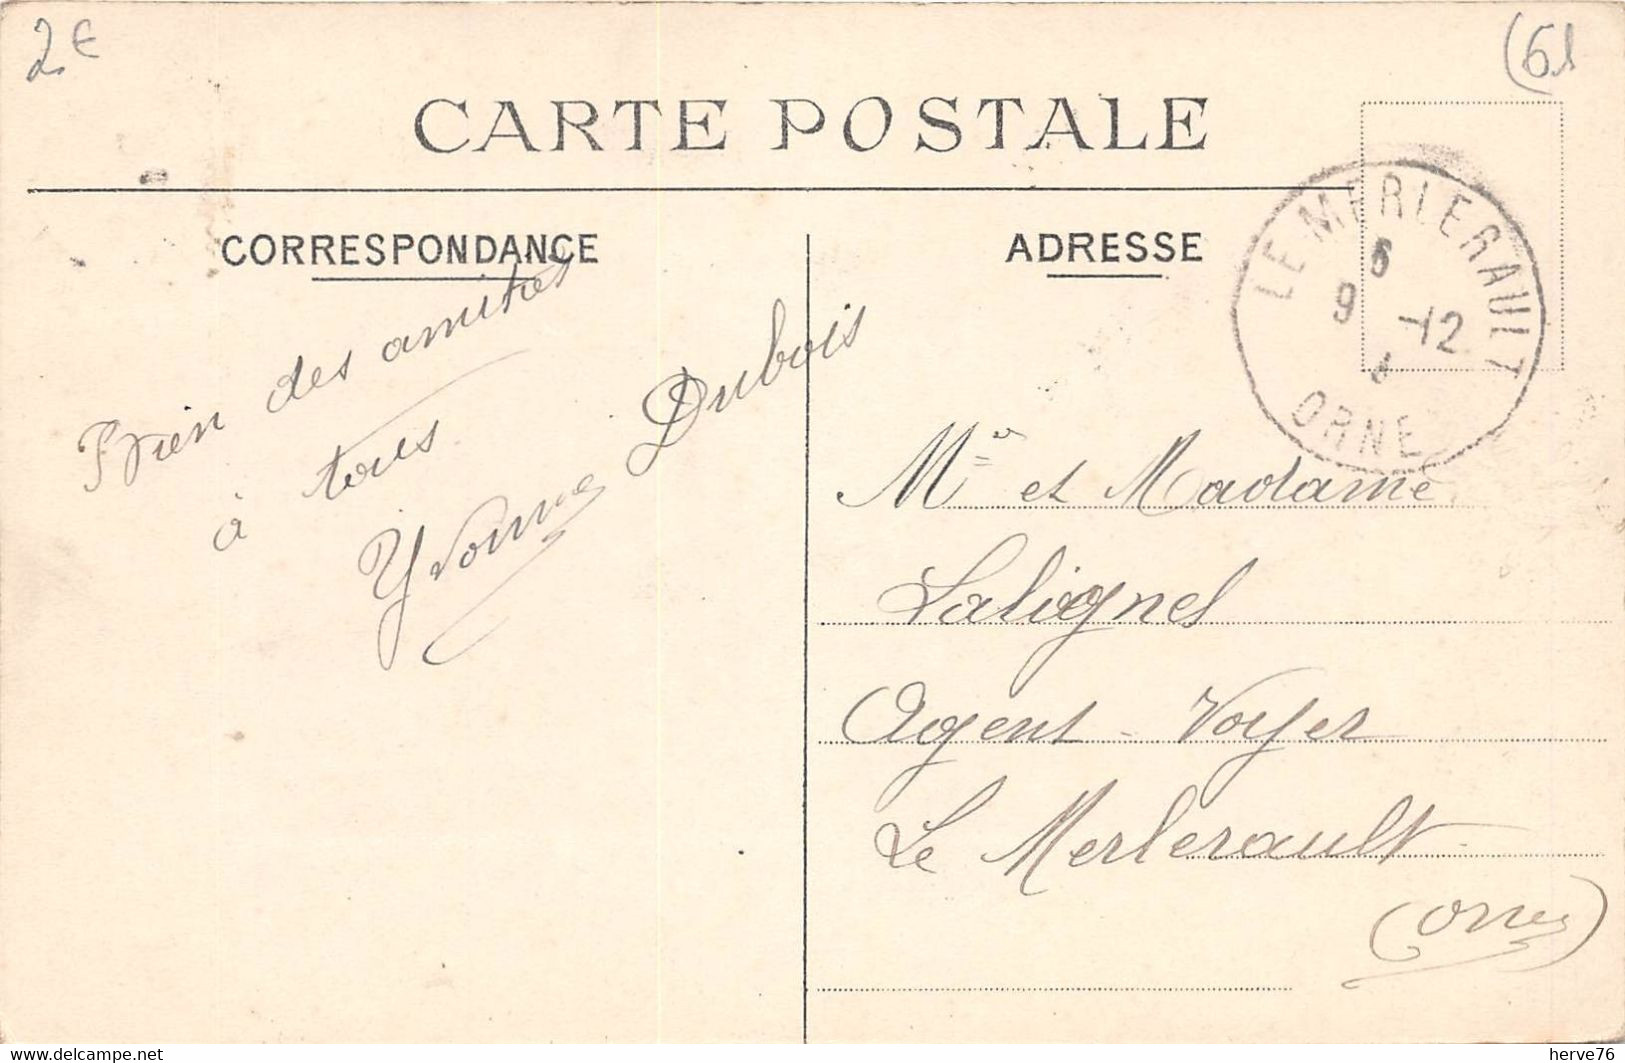 2€
(61
CARTE POSTALE
CORRESPONDANCE
ADRESSE
LE MERLERAULT
9 -12
ORNE
Bien des amitiés
à tous
Yvonne Dubois
Mr et Madame
Lalignel
Agent-Voyer
Le Merlerault
(Orne)
delcampe.net
herve76